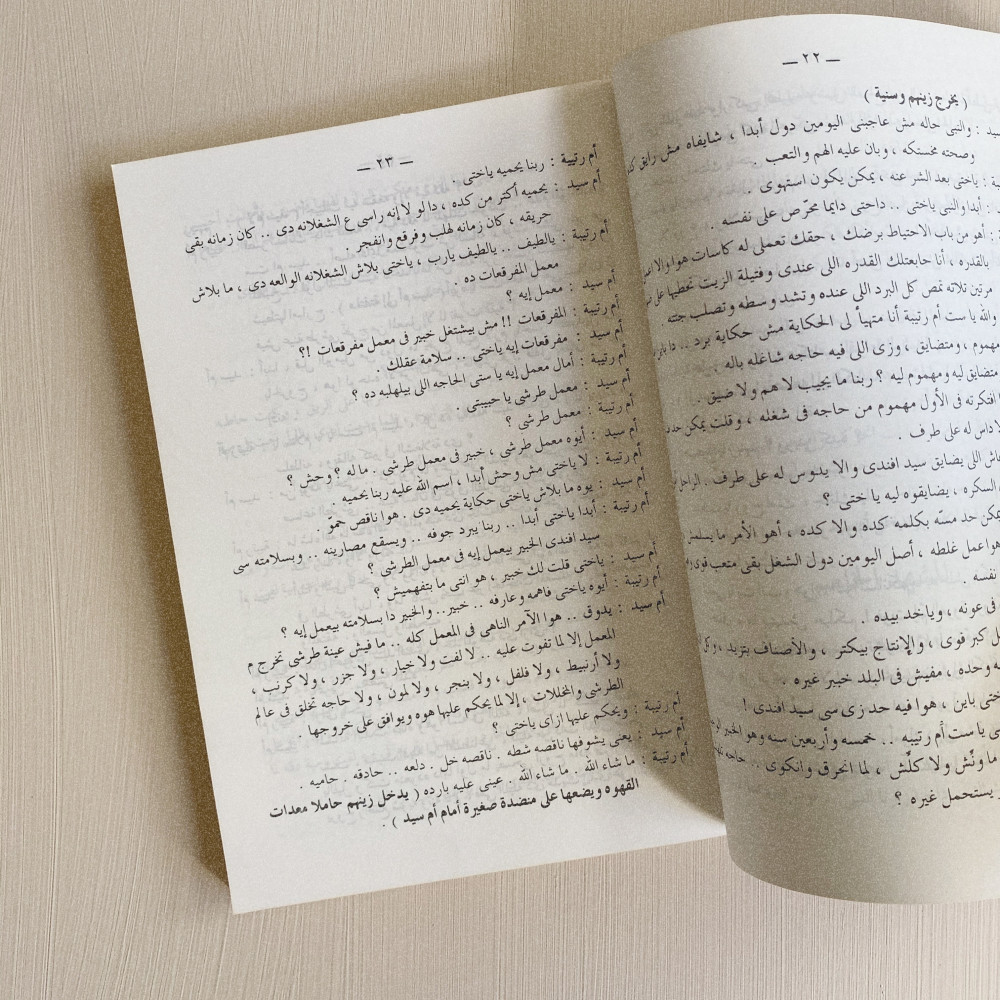 — ٢٢ —
( يخرج زينهم وسنية )
سيد : والنبى حاله مش عاجبنى اليومين دول أبدا ، شايفاه مش رايق
وصحته مخسكه ، وبان عليه الهم والتعب .
: ياختى بعد الشر عنه ، يمكن يكون استهوى .
: أبدا والنبى ياختى .. داحتى دايما محرّص على نفسه .
: أهو من باب الاحتياط برضك ، حقك تعملى له كاسات هوا والا
بالقدره ، أنا حابعتلك القدره اللى عندى وفتيلة الزيت تحطيها على
مرتين تلاته تمص كل البرد اللى عنده وتشد وسطه وتصلب جتته .
والله يا ست أم رتيبة أنا متهيأ لى الحكاية مش حكاية برد ..
مهموم ، ومتضايق ، وزى اللى فيه حاجه شاغله باله .
متضايق ليه ومهموم ليه ؟ ربنا ما يجيب لا هم ولا ضيق .
افتكرته فى الأول مهموم من حاجه فى شغله ، وقلت يمكن حد
داس له على طرف .
اللى يضايق سيد افندى والا يدوس له على طرف .
السكره ، يضايقوه ليه يا ختى ؟
يمكن حد مسّه بكلمه كده والا كده ، أهو الأمر ما يسلمش
عمل غلطه ، أصل اليومين دول الشغل بقى متعب قوى
نفسه .
فى عونه ، وياخد بيده .
كبر قوى ، والإنتاج بيكتر ، والأصناف بتزيد ،
وحده ، مفيش فى البلد خبير غيره .
ختى باين ، هوا فيه حد زى سى سيد افندى !
يا ست أم رتيبه .. خمسه وأربعين سنه وهو الخبير
ما ونّش ولا كلّش ، لما انحرق وانكوى ..
يستحمل غيره ؟
— ٢٣ —
أم رتيبة : ربنا يحميه ياختى .
أم سيد : يحميه أكتر من كده ، دا لو لا إنه راسى ع الشغلانه دى .. كان زمانه بقى
حريقه ، كان زمانه هلب وفرقع وانفجر .
أم رتيبة : يالطيف .. يالطيف يارب ، ياختى بلاش الشغلانه الوالعه دى ، ما بلاش
معمل المفرقعات ده .
أم سيد : معمل إيه ؟
أم رتيبة : المفرقعات !! مش بيشتغل خبير فى معمل مفرقعات !؟
أم سيد : مفرقعات إيه ياختى .. سلامة عقلك .
أم رتيبة : أمال معمل إيه يا ستى الحاجه اللى بيلهلبه ده ؟
أم سيد : معمل طرشى يا حبيبتى .
أم رتيبة : معمل طرشى ؟
أم سيد : أيوه معمل طرشى ، خبير فى معمل طرشى . ما له ؟ وحش ؟
أم رتيبة : لا ياختى مش وحش أبدا ، اسم الله عليه ربنا يحميه .
أم سيد : يوه ما بلاش ياختى حكاية يحميه دى . هوا ناقص حموّ .
أم رتيبة : أبدا ياختى أبدا .. ربنا يبرد جوفه .. ويسقع مصارينه .. وبسلامته سى
سيد افندى الخبير بيعمل إيه فى معمل الطرشى ؟
أم سيد : ياختى قلت لك خبير ، هو انتى ما بتفهميش ؟
أم رتيبة : أيوه ياختى فاهمه وعارفه .. خبير .. والخبير دا بسلامته بيعمل إيه ؟
أم سيد : يدوق .. هوا الآمر الناهى فى المعمل كله .. ما فيش عينة طرشى تخرج م
المعمل إلا لما تفوت عليه .. لا لفت ولا خيار ، ولا جزر ، ولا كرنب ،
ولا أرنبيط ، ولا فلفل ، ولا بنجر ، ولا لمون ، ولا حاجه تخلق فى عالم
الطرشى والمخللات ، إلا لما يحكم عليها هوه ويوافق على خروجها .
أم رتيبة : ويحكم عليها ازاى ياختى ؟
أم سيد : يعنى يشوفها ناقصه شطه . ناقصه خل . دلعه .. حادقه . حاميه .
أم رتيبة : ما شاء الله . ما شاء الله . عينى عليه بارده ( يدخل زينهم حاملا معدات
القهوه ويضعها على منضدة صغيرة أمام أم سيد ) .